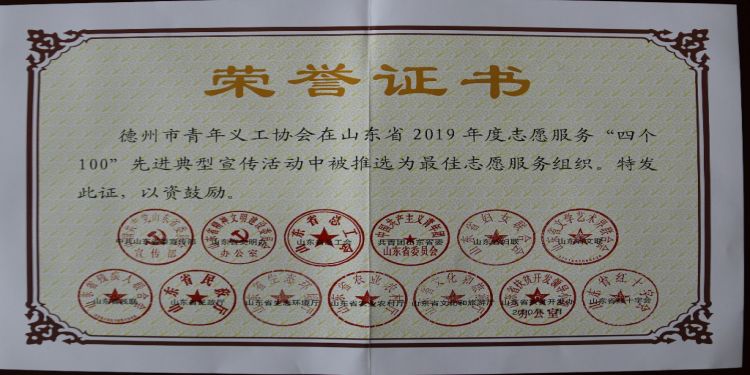 荣誉证书
德州市青年义工协会在山东省 2019 年度志愿服务“四个
100”先进典型宣传活动中被推选为最佳志愿服务组织。特发
此证，以资鼓励。
中共山东省委宣传部 山东省文明办 山东省总工会 共青团山东省委 山东省妇联 山东省文联
山东省残联 山东省民政厅 山东省生态环境厅 山东省农业农村厅 山东省文化和旅游厅 山东省扶贫开发办 山东省红十字会